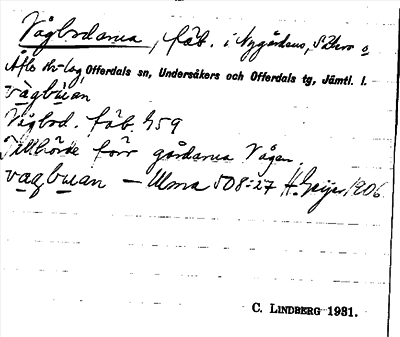 Vågbodarna, fäb. i Nygårdens, Såkra o
Åflo sk-lag, Offerdals sn, Undersåkers och Offerdals tg, Jämtl. l.
vågbùan
Vågbod. fäb. 459
Tillhörde förr gårdarna Vågen.
vagbuan — Ulma 508:27 H. Geijer 1906.
C. LINDBERG 1931.